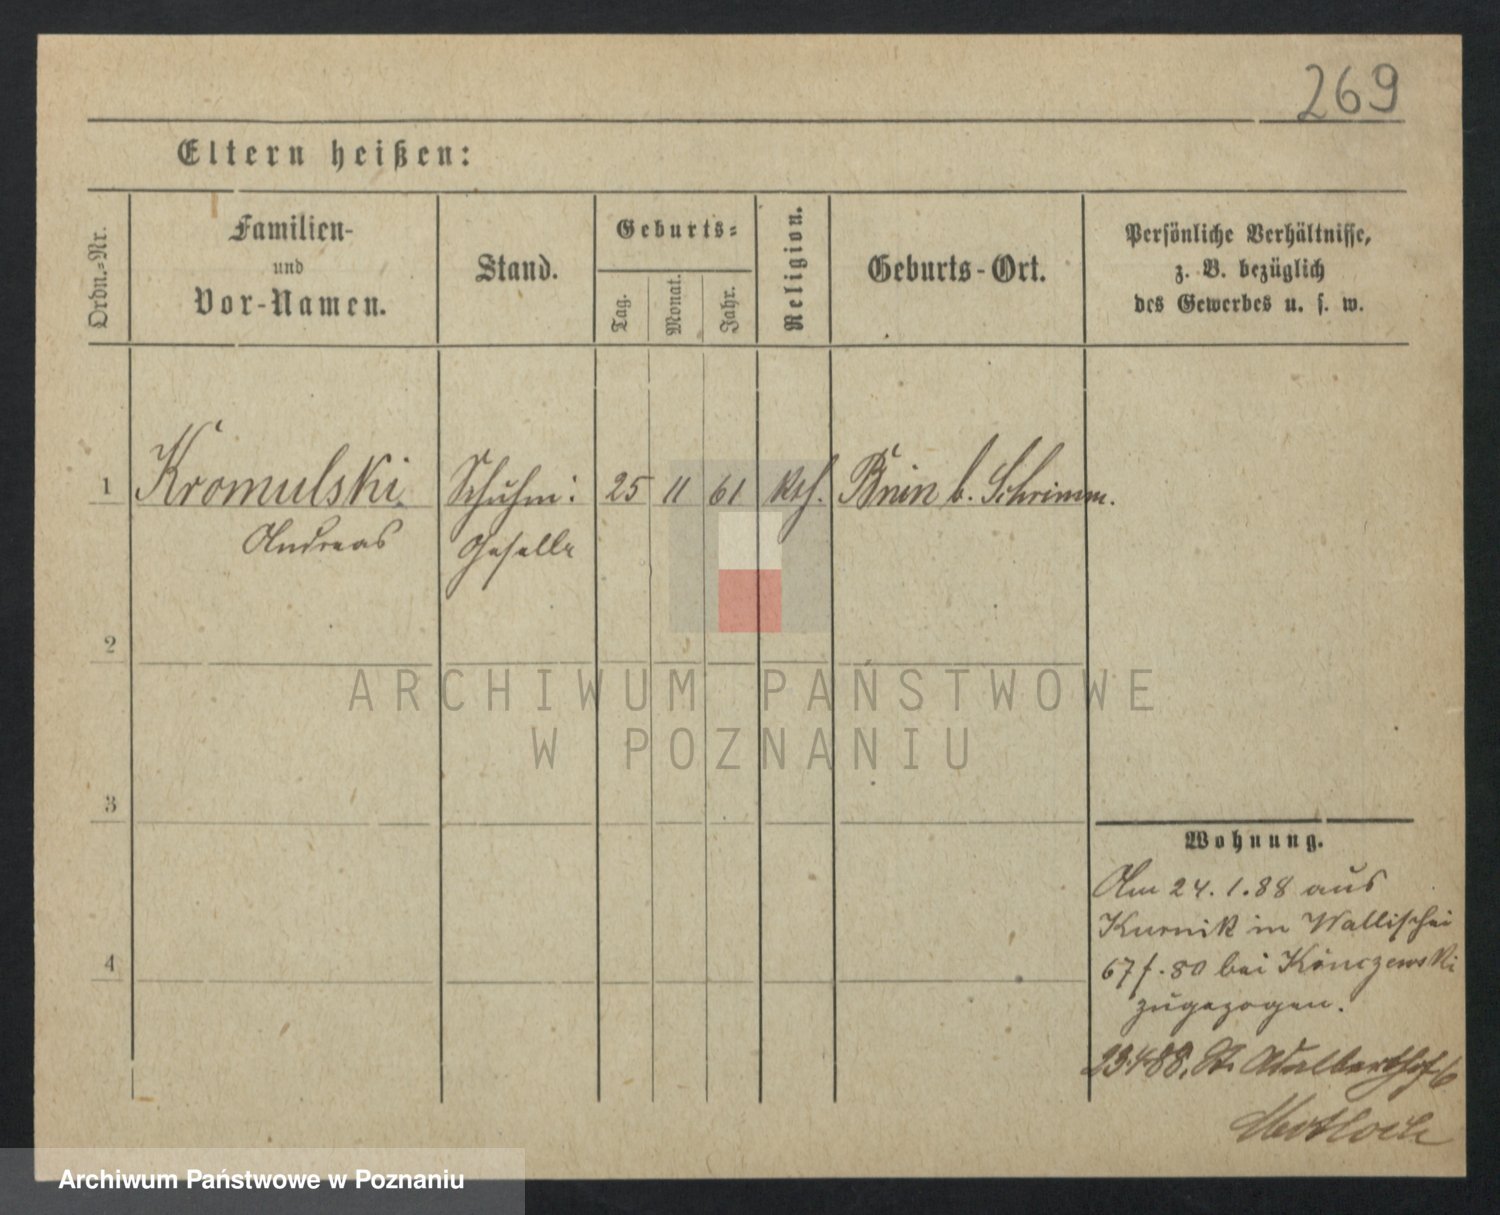 269
Eltern heißen:
Ordn.-Nr.
Familien-
und
Vor-Namen.
Stand.
Geburts-
Tag.
Monat.
Jahr.
Religion.
Geburts-Ort.
Persönliche Verhältnisse,
z. B. bezüglich
des Gewerbes u. s. w.
1 Kromulski Schuhm: 25 11 61 kth. Bnin b. Schrimm.
Andreas Geselle
2
3
4
ARCHIWUM PAŃSTWOWE
W POZNANIU
Wohnung.
Am 24.1.88 aus
Kurnik in Wallischei
67 f. 80 bei Konczewski
zugezogen.
23.4.88. St. Adalberthof 6
Archiwum Państwowe w Poznaniu